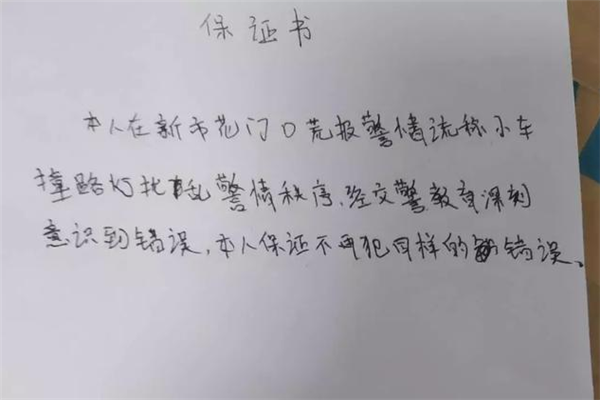 保证书
本人在新市花门口荒报警情谎称小车
撞路灯扰乱警情秩序、经交警教育深刻
意识到错误,本人保证不再犯同样的错误、